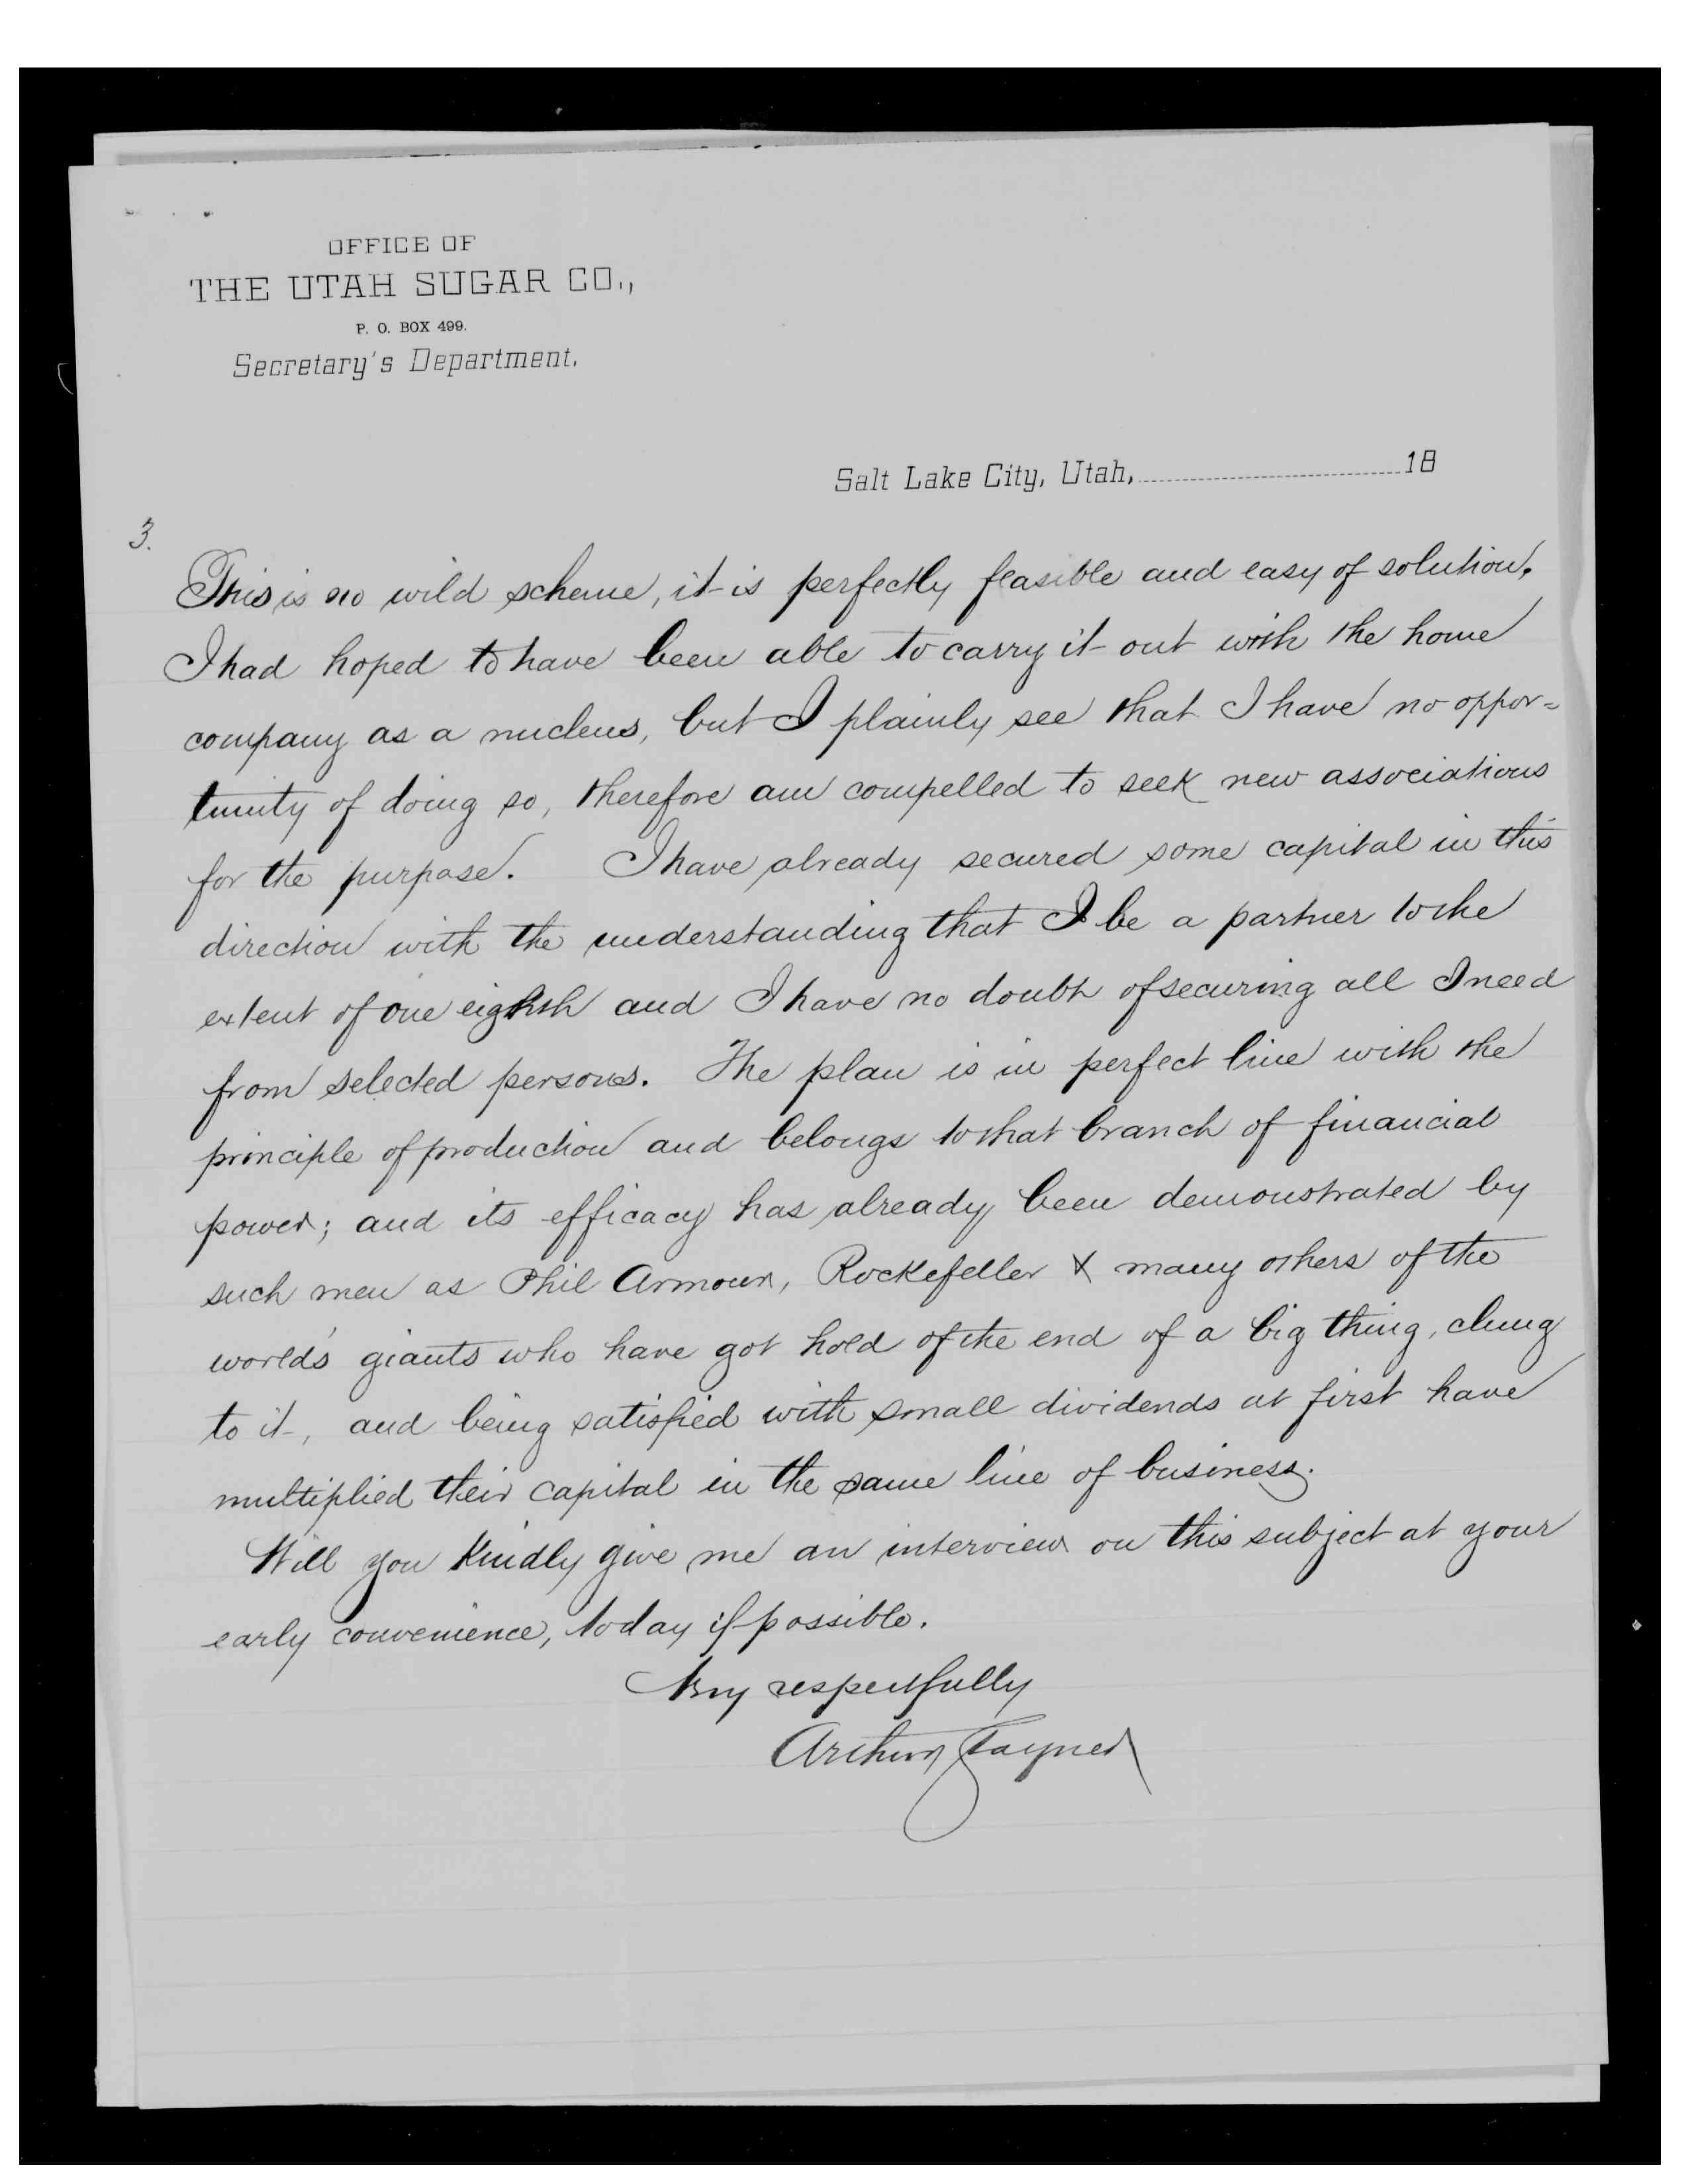 OFFICE OF
THE UTAH SUGAR CO.,
P. O. BOX 499.
Secretary's Department.
Salt Lake City, Utah, 18
3.
This is no wild scheme, it is perfectly feasible and easy of solution.
I had hoped to have been able to carry it out with the home
company as a nucleus, but I plainly see that I have no oppor=
tunity of doing so, therefore am compelled to seek new associations
for the purpose. I have already secured some capital in this
direction with the understanding that I be a partner to the
extent of one eighth and I have no doubt of securing all I need
from selected persons. The plan is in perfect line with the
principle of production and belongs to that branch of financial
power; and its efficacy has already been demonstrated by
such men as Phil Armour, Rockefeller & many others of the
world's giants who have got hold of the end of a big thing, clung
to it, and being satisfied with small dividends at first have
multiplied their capital in the same line of business.
Will you kindly give me an interview on this subject at your
early convenience, today if possible.
Very respectfully
Arthur Stayner